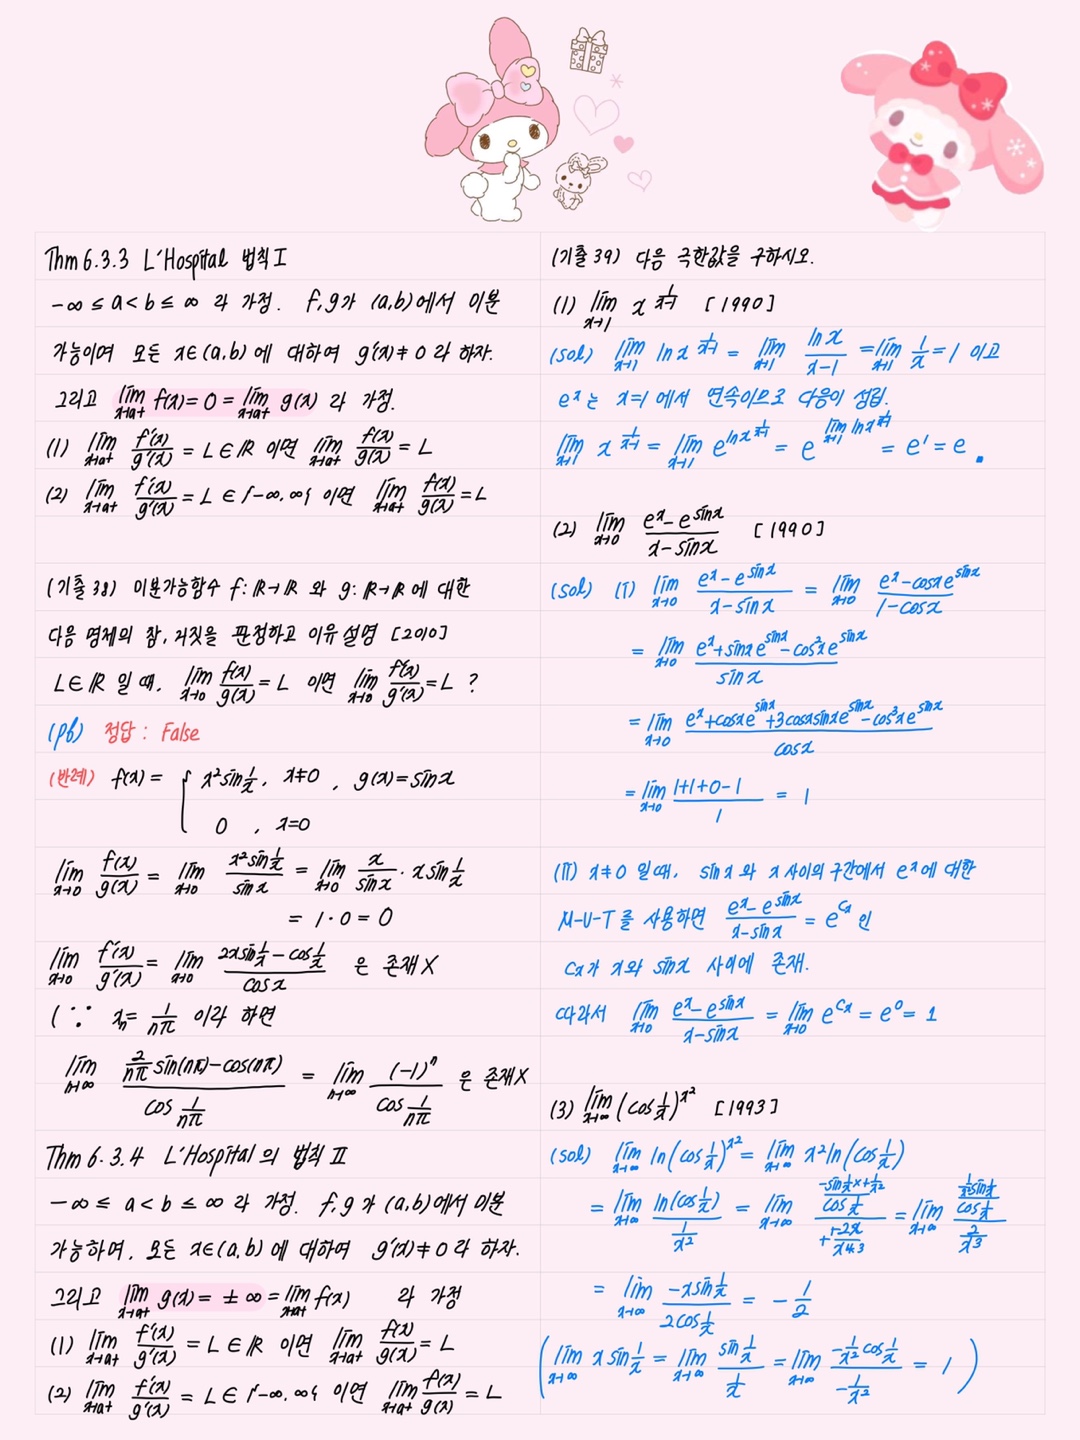 Thm 6.3.3 L'Hospital 법칙 I
-∞ ≤ a < b ≤ ∞ 라 가정. f, g가 (a,b)에서 미분
가능이며 모든 x∈(a,b)에 대하여 g'(x)≠0 라 하자.
그리고 lim_{x→a+} f(x) = 0 = lim_{x→a+} g(x) 라 가정.
(1) lim_{x→a+} f'(x)/g'(x) = L ∈ ℝ 이면 lim_{x→a+} f(x)/g(x) = L
(2) lim_{x→a+} f'(x)/g'(x) = L ∈ {-∞, ∞} 이면 lim_{x→a+} f(x)/g(x) = L
(기출 38) 미분가능함수 f: ℝ→ℝ 와 g: ℝ→ℝ에 대한
다음 명제의 참, 거짓을 판정하고 이유 설명 [2010]
L∈ℝ 일 때, lim_{x→0} f(x)/g(x) = L 이면 lim_{x→0} f'(x)/g'(x) = L ?
(pf) 정답 : False
(반례) f(x) = { x² sin 1/x, x≠0 , g(x) = sin x
0 , x=0
lim_{x→0} f(x)/g(x) = lim_{x→0} (x² sin 1/x)/(sin x) = lim_{x→0} x/(sin x) · x sin 1/x
= 1·0 = 0
lim_{x→0} f'(x)/g'(x) = lim_{x→0} (2x sin 1/x - cos 1/x)/(cos x) 은 존재X
(∵ xₙ = 1/(nπ) 이라 하면
lim_{n→∞} (2/(nπ) sin(nπ) - cos(nπ))/(cos 1/(nπ)) = lim_{n→∞} (-1)ⁿ/(cos 1/(nπ)) 은 존재X
Thm 6.3.4 L'Hospital의 법칙 II
-∞ ≤ a < b ≤ ∞ 라 가정. f, g가 (a,b)에서 미분
가능하며, 모든 x∈(a,b)에 대하여 g'(x)≠0라 하자.
그리고 lim_{x→a+} g(x) = ±∞ = lim_{x→a+} f(x) 라 가정
(1) lim_{x→a+} f'(x)/g'(x) = L ∈ ℝ 이면 lim_{x→a+} f(x)/g(x) = L
(2) lim_{x→a+} f'(x)/g'(x) = L ∈ {-∞, ∞} 이면 lim_{x→a+} f(x)/g(x) = L
(기출 39) 다음 극한값을 구하시오.
(1) lim_{x→1} x^{1/(x-1)} [1990]
(sol) lim_{x→1} ln x^{1/(x-1)} = lim_{x→1} (ln x)/(x-1) = lim_{x→1} 1/x = 1 이고
eˣ는 x=1에서 연속이므로 다음이 성립.
lim_{x→1} x^{1/(x-1)} = lim_{x→1} e^{ln x^{1/(x-1)}} = e^{lim_{x→1} ln x^{1/(x-1)}} = e¹ = e .
(2) lim_{x→0} (eˣ - e^{sin x})/(x - sin x) [1990]
(sol) (i) lim_{x→0} (eˣ - e^{sin x})/(x - sin x) = lim_{x→0} (eˣ - cos x e^{sin x})/(1 - cos x)
= lim_{x→0} (eˣ + sin x e^{sin x} - cos² x e^{sin x})/(sin x)
= lim_{x→0} (eˣ + cos x e^{sin x} + 3cos x sin x e^{sin x} - cos³ x e^{sin x})/(cos x)
= lim_{x→0} (1+1+0-1)/1 = 1
(ii) x≠0 일 때, sin x 와 x 사이의 구간에서 eˣ에 대한
M-V-T를 사용하면 (eˣ - e^{sin x})/(x - sin x) = e^{Cx} 인
Cx가 x와 sin x 사이에 존재.
따라서 lim_{x→0} (eˣ - e^{sin x})/(x - sin x) = lim_{x→0} e^{Cx} = e⁰ = 1
(3) lim_{x→∞} (cos 1/x)^{x²} [1993]
(sol) lim_{x→∞} ln(cos 1/x)^{x²} = lim_{x→∞} x² ln(cos 1/x)
= lim_{x→∞} ln(cos 1/x)/(1/x²) = lim_{x→∞} ((-sin 1/x × + 1/x²)/(cos 1/x))/(+ -2x/x^{4·3}) = lim_{x→∞} ((1/x² sin 1/x)/(cos 1/x))/(2/x³)
= lim_{x→∞} (-x sin 1/x)/(2cos 1/x) = -1/2
(lim_{x→∞} x sin 1/x = lim_{x→∞} (sin 1/x)/(1/x) = lim_{x→∞} (-1/x² cos 1/x)/(-1/x²) = 1)